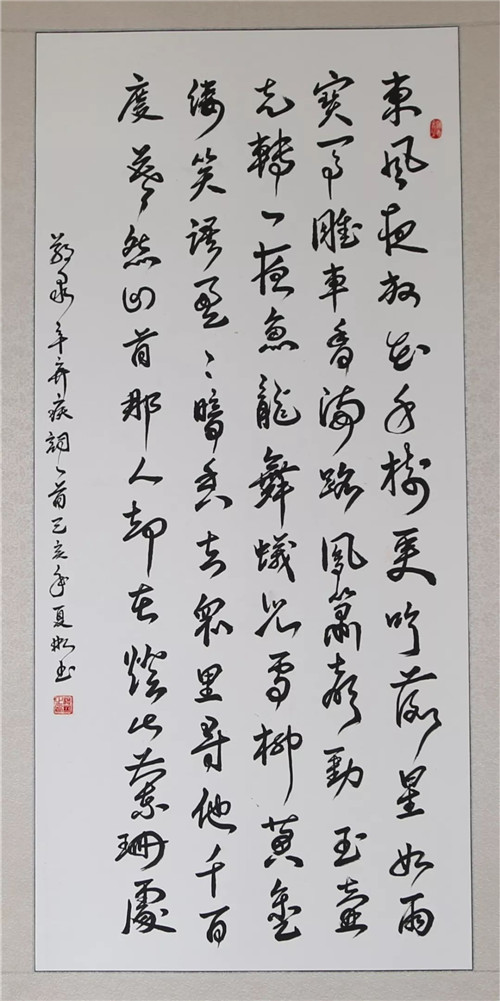 東風夜放花千樹更吹落星如雨
寶馬雕車香滿路鳳簫聲動玉壺
光轉一夜魚龍舞蛾兒雪柳黄金
縷笑語盈々暗香去眾里尋他千百
度驀然回首那人却在燈火闌珊處
敬录辛弃疾詞一首己亥年夏书